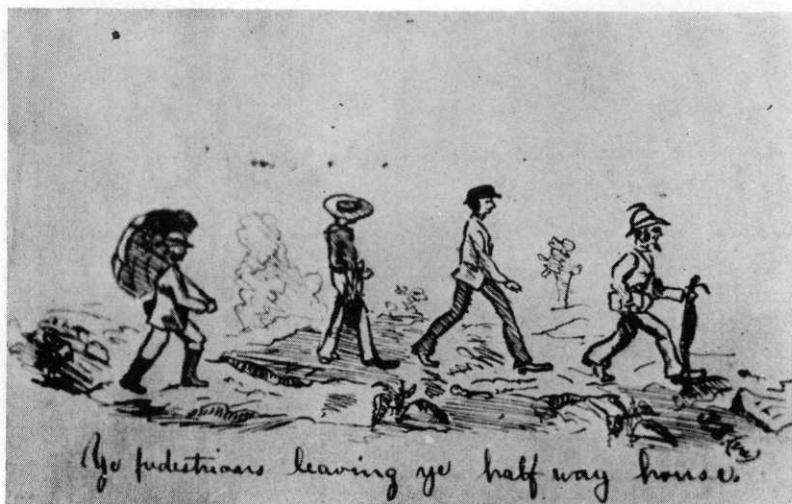 Ye pedestrians leaving ye half way house.